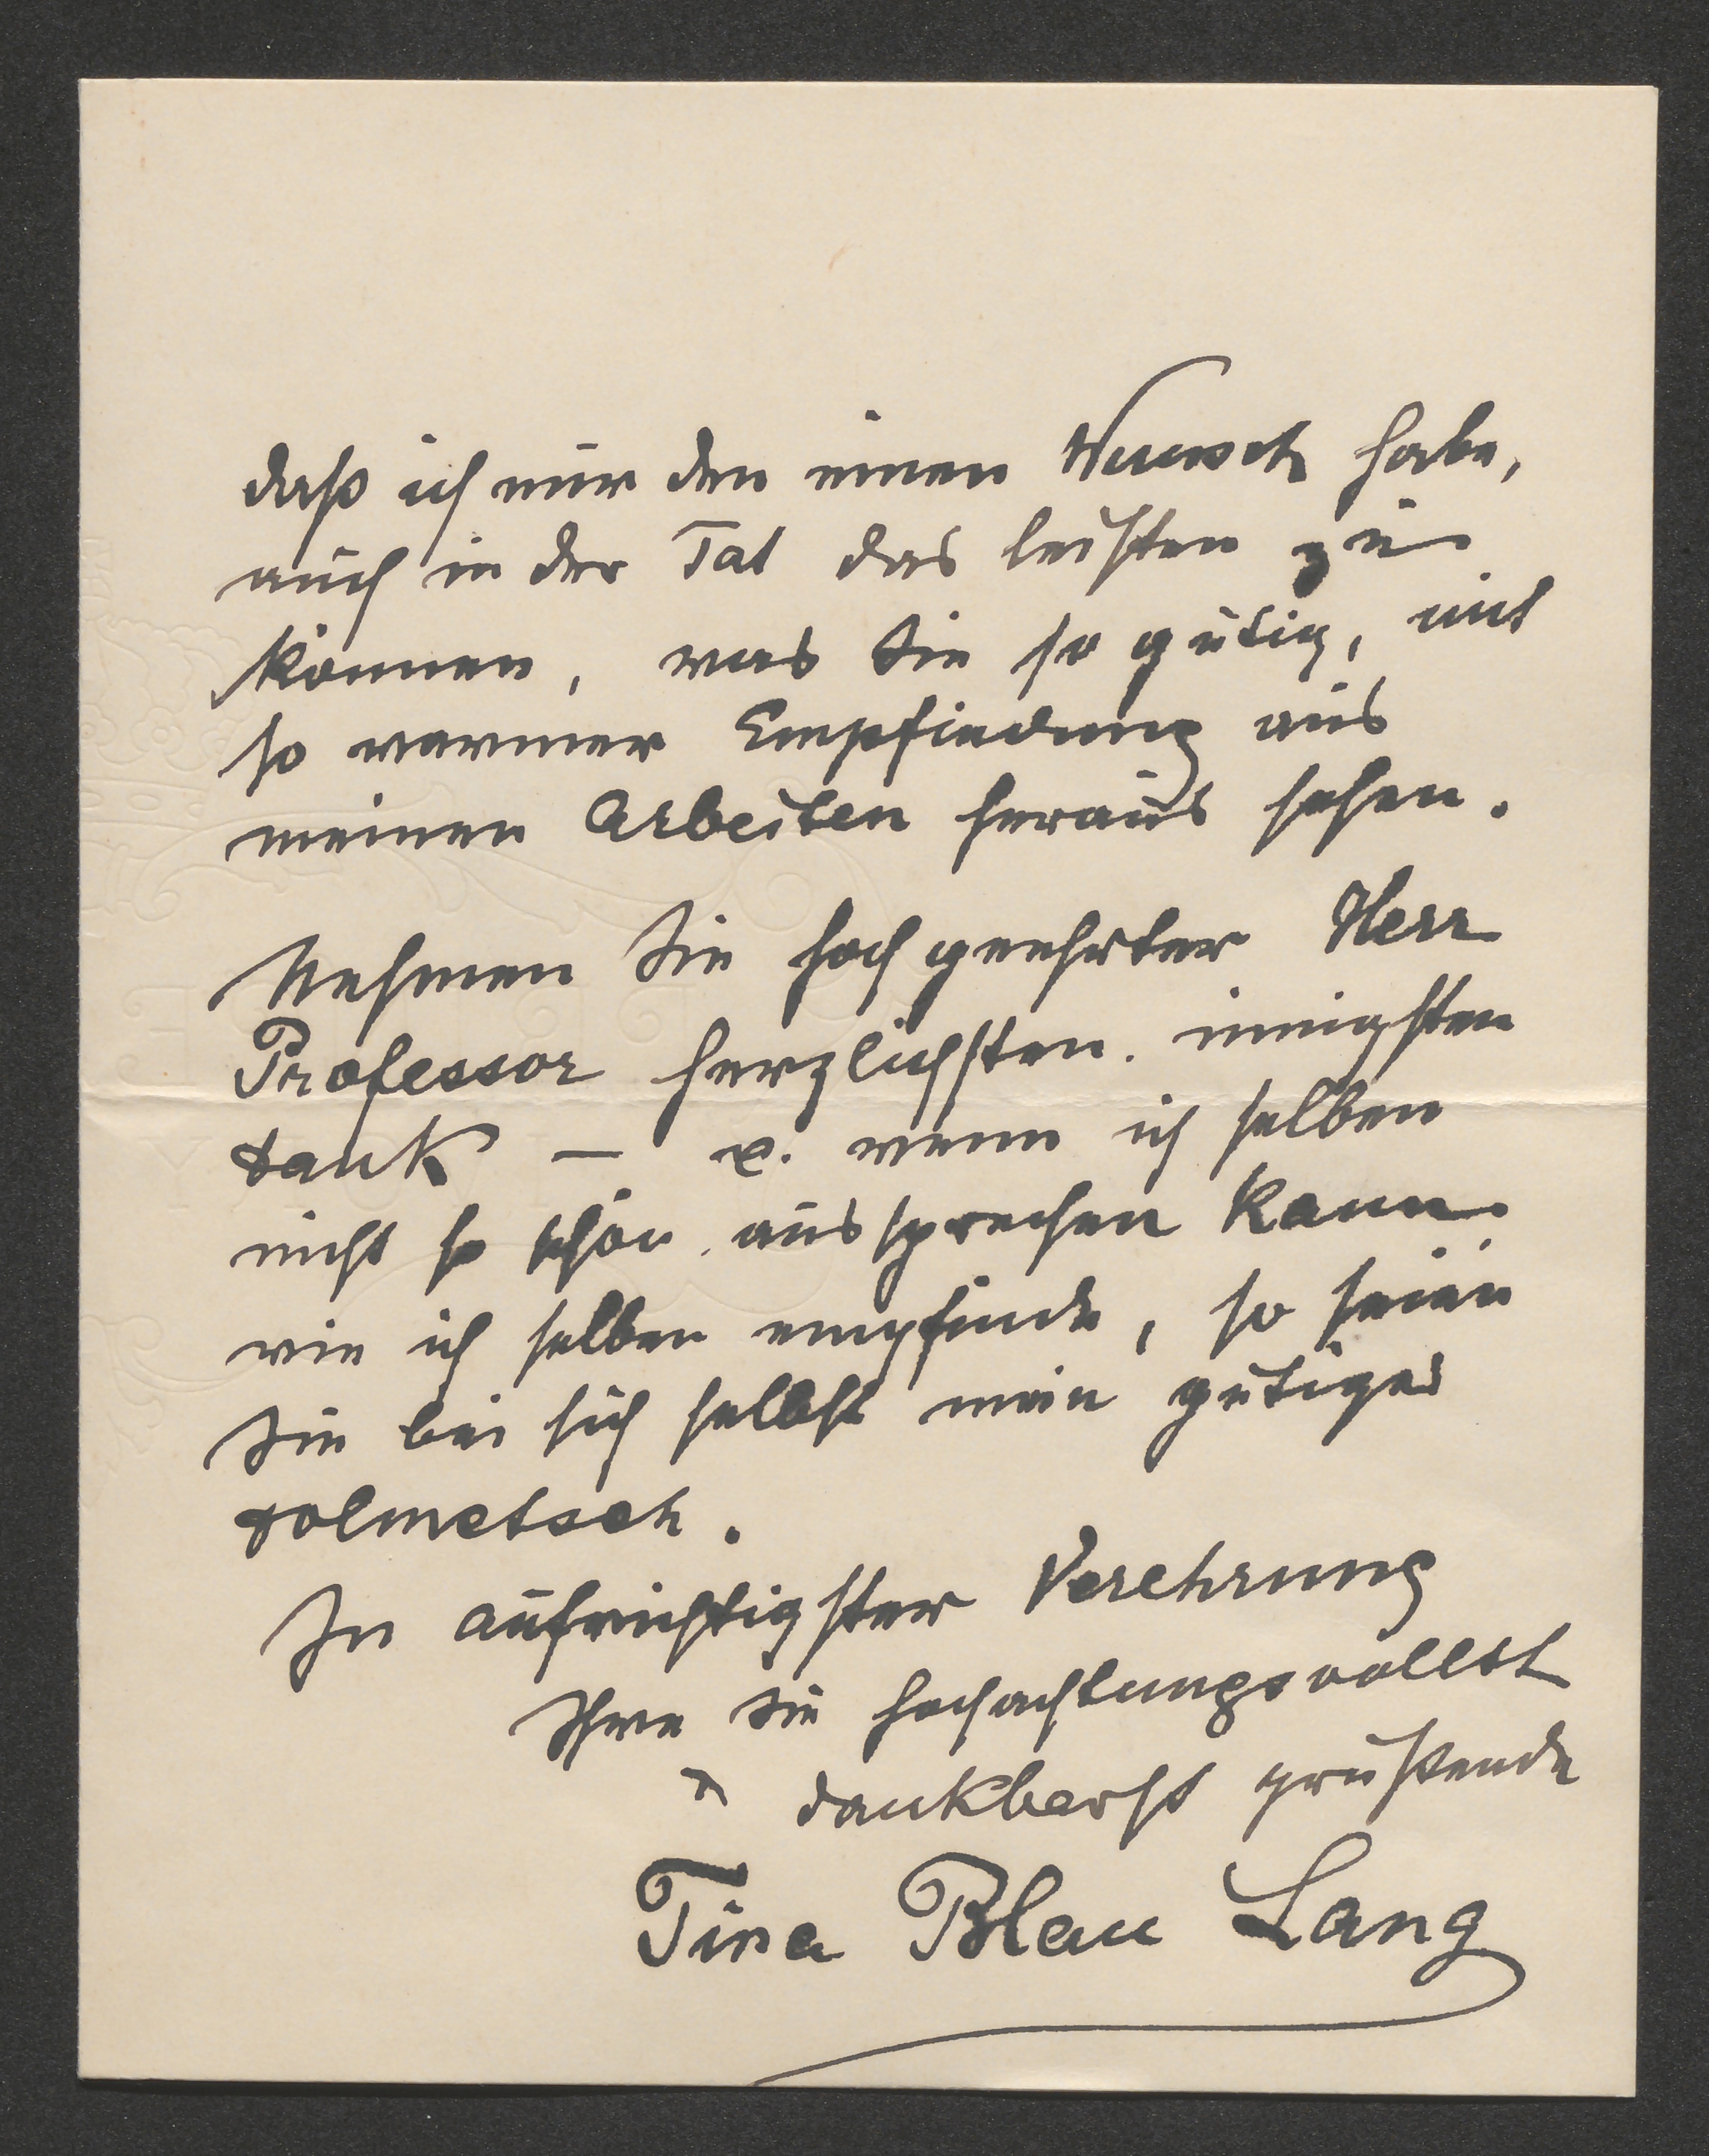 daß ich nur den einen Wunsch habe,
auch in der Tat das leisten zu
können, was Sie so gütig, mit
so warmer Empfindung aus
meinen Arbeiten heraus sehen.
Nehmen Sie hochgeehrter Herr
Professor herzlichsten innigsten
Dank – u. wenn ich selben
nicht so schön aussprechen kann
wie ich selben empfinde, so seien
Sie bei sich selbst mein gütiger
Dolmetsch.
In aufrichtigster Verehrung
Ihre Sie hochachtungsvollst
& dankbarst grüßende
Tina Blau Lang